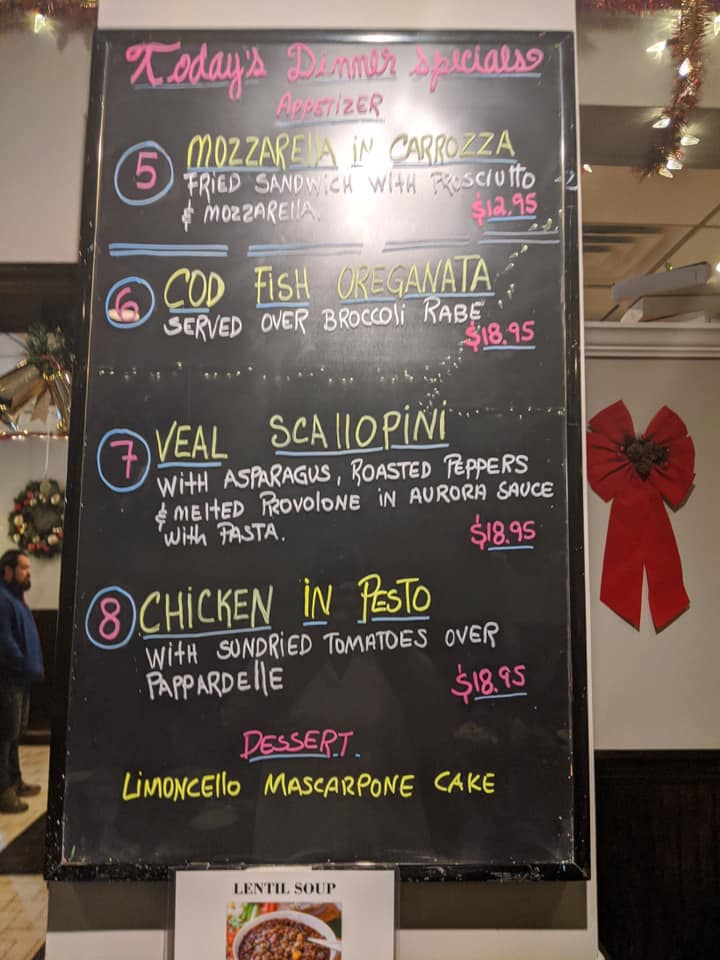 Today's Dinner Specials
APPETIZER
5 MOZZARELLA IN CARROZZA
FRIED SANDWICH WITH PROSCIUTTO
& MOZZARELLA.
$12.95
6 COD FISH OREGANATA
SERVED OVER BROCCOLI RABE
$18.95
7 VEAL SCALLOPINI
WITH ASPARAGUS, ROASTED PEPPERS
& MELTED PROVOLONE IN AURORA SAUCE
WITH PASTA.
$18.95
8 CHICKEN IN PESTO
WITH SUNDRIED TOMATOES OVER
PAPPARDELLE
$18.95
DESSERT
LIMONCELLO MASCARPONE CAKE
LENTIL SOUP